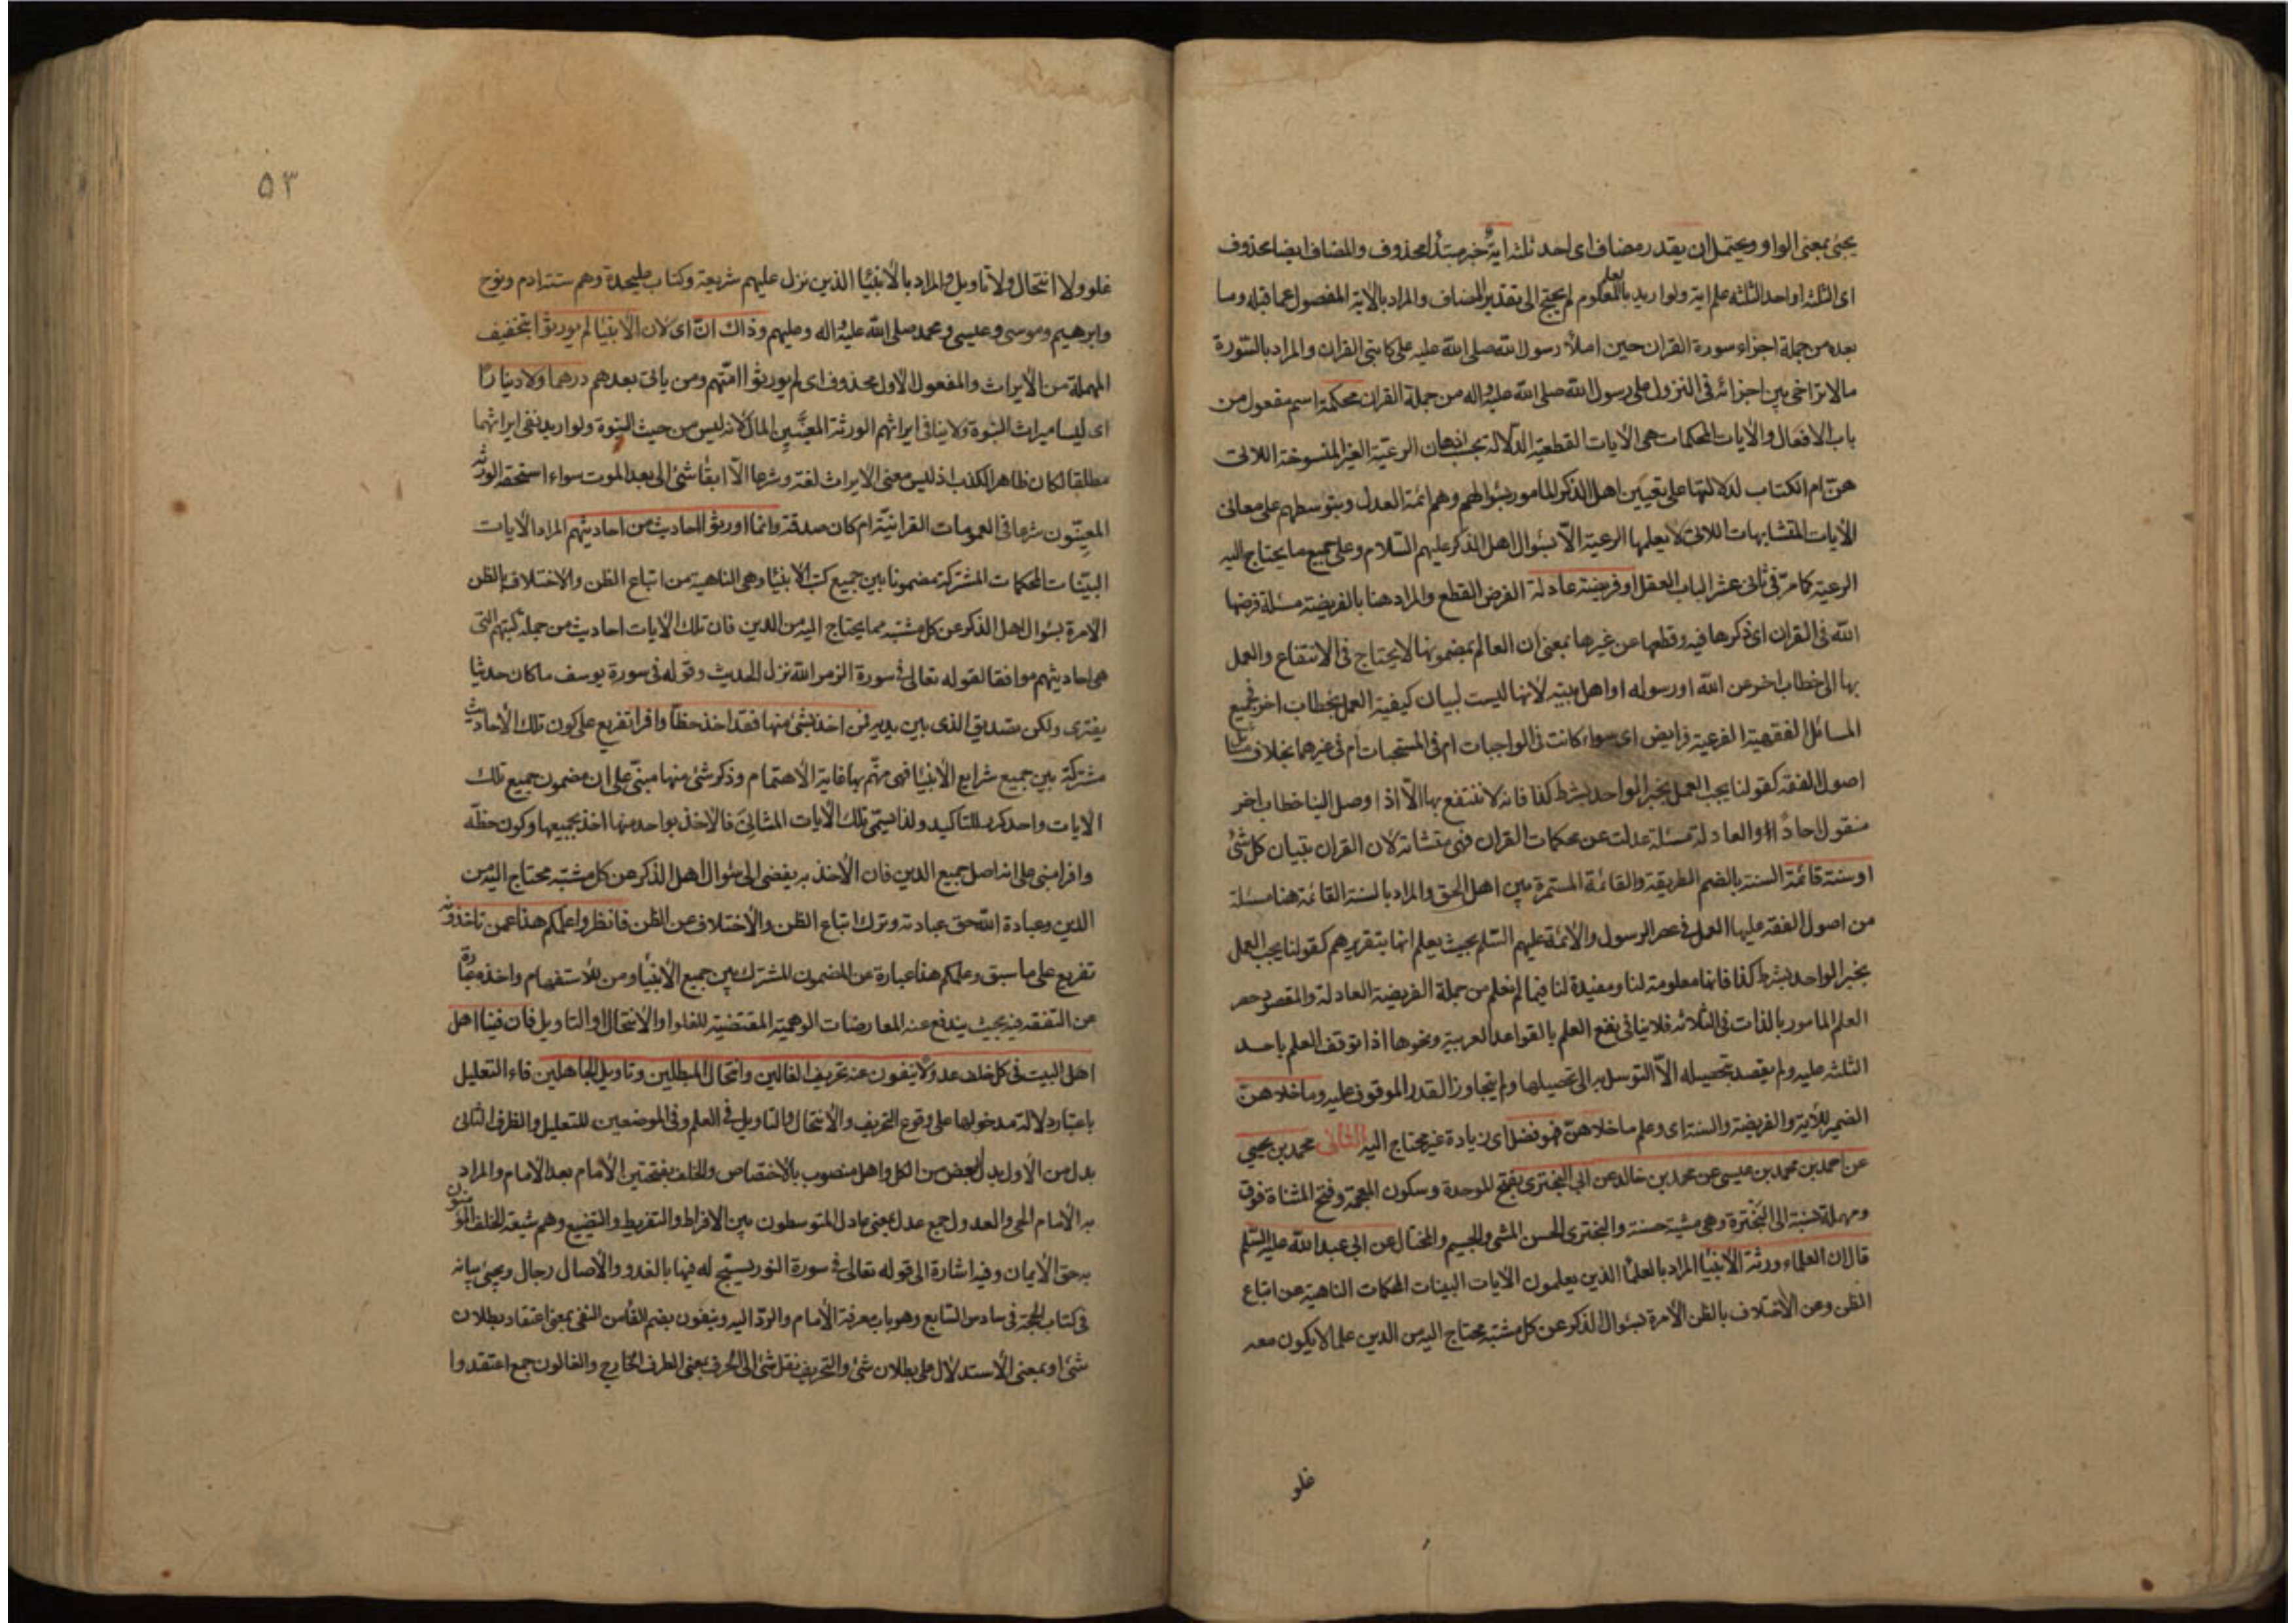 يجئ بمعنى الواو ويحتمل ان يقدر مضاف اى احد ثلثه اية خبر مبتدأ محذوف والمضاف ايضا محذوف
اى الثلثه او احد الثلثه علم اية ولو اريد بالعلم المعلوم لم يحتج الى تقدير المضاف والمراد بالاية المفصول عما قبله وما
بعده من جملة اجزاء سورة القران حين املأ رسول الله صلى الله عليه على كاتبى القران والمراد بالسورة
مالا تراخى بين اجزائه فى النزول على رسول الله صلى الله عليه واله من جملة القران محكمة اسم مفعول من
باب الافعال والايات المحكمات هى الايات القطعية الدلالة بحسب اذهان الرعية الغير المنسوخة اللاتى
هن ام الكتاب لدلالتها على تعيين اهل الذكر المامور بسؤالهم وهم ائمة العدل وبتوسطهم على معانى
الايات المتشابهات اللاتى لا يعلمها الرعية الا بسؤال اهل الذكر عليهم السلام وعلى جميع ما يحتاج اليه
الرعية كما مر فى ثانى عشر الباب العقل او فريضة عادلة الفرض القطع والمراد هنا بالفريضة مسئلة فرضها
الله فى القران اى ذكرها فيه وقطعها عن غيرها بمعنى ان العالم بمضمونها لا يحتاج فى الانتفاع والعمل
بها الى خطاب اخر عن الله او رسوله او اهل بيته لانها ليست لبيان كيفية العمل بخطاب اخر فجميع
المسائل الفقهية الفرعية فرايض اى سواء كانت فى الواجبات ام فى المستحبات ام فى غيرهما بخلاف مسائل
اصول الفقه كقولنا يجب العمل بخبر الواحد بشرط كذا فانه لا ننتفع بها الا اذا وصل الينا خطاب اخر
منقول احادا والعادلة مسئلة عدلت عن محكمات القران فهى متشابه لان القران تبيان كل شئ
او سنة قائمة السنة بالضم الطريقة والقائمة المستمرة بين اهل الحق والمراد بالسنة القائمة هنا مسئلة
من اصول الفقه عليها العمل فى عصر الرسول والائمة عليهم السلم بحيث يعلم انها بتقريرهم كقولنا يجب العمل
بخبر الواحد بشرط كذا فانها معلومة لنا ومفيدة لنا فيما لم نعلم من جملة الفريضة العادلة والمقصود حصر
العلم المامور بالذات فى الثلاثه فلا ينافى نفع العلم بالقواعد العربية ونحوها اذا توقف العلم باحد
الثلثه عليه ولم يقصد بتحصيله الا التوسل به الى تحصيلها ولم يتجاوز القدر الموقوف عليه وما خلاهن
الضمير للاية والفريضة والسنة اى وعلم ما خلاهن فهو فضل اى زيادة غير محتاج اليه الثانى محمد بن يحيى
عن احمد بن محمد بن عيسى عن محمد بن خالد عن ابى البخترى بفتح الموحدة وسكون المعجمة وفتح المثناة فوق
ومهملة نسبة الى البخترة وهى مشية حسنة والبخترى الحسن المشى والجسيم والمختال عن ابى عبد الله عليه السلم
قال ان العلماء ورثة الانبيا المراد بالعلما الذين يعلمون الايات البينات المحكمات الناهية عن اتباع
الظن وعن الاختلاف بالظن الامرة بسؤال الذكر عن كل مشتبه محتاج اليه من الدين علما لا يكون معه
غلو
٥٣
غلو ولا انتحال ولا تاويل والمراد بالانبيا الذين نزل عليهم شريعة وكتاب عليحدة وهم ستة ادم ونوح
وابرهيم وموسى وعيسى ومحمد صلى الله عليه واله وعليهم وذاك ان اى لان الانبيا لم يورثوا بتخفيف
المهملة من الايراث والمفعول الاول محذوف اى لم يورثوا امتهم ومن ياتى بعدهم درهما ولا دينارا
اى ليسا ميراث النبوة ولا ينافى ايراثهم الورثة المعينين المال لانه ليس من حيث النبوة ولو اريد نفى ايراثهما
مطلقا لكان ظاهر الكذب اذ ليس معنى الايراث لغة وشرعا الا ابقا شئ الى بعد الموت سواء استحقه الورثه
المعينون شرعا فى العمومات القرانية ام كان صدقة وانما اورثوا احاديث من احاديثهم المراد الايات
البينات المحكمات المشتركة مضمونا بين جميع كتب الانبيا وهى الناهية من اتباع الظن والاختلاف بالظن
الامرة بسؤال اهل الذكر عن كل مشتبه مما يحتاج اليه من الدين فان تلك الايات احاديث من جملة كتبهم التى
هى احاديثهم موافقا لقوله تعالى فى سورة الزمر الله نزل احسن الحديث وقوله فى سورة يوسف ما كان حديثا
يفترى ولكن تصديق الذى بين يديه فمن اخذ بشئ منها فقد اخذ حظا وافرا تفريع على كون تلك الاحاديث
مشتركة بين جميع شرايع الانبيا فهى مهتم بها غاية الاهتمام وذكر شئ منها مبنى على ان مضمون جميع تلك
الايات واحد كرر للتاكيد ولذا يسمى تلك الايات المثانى فالاخذ بواحد منها اخذ بجميعها وكون حظه
وافرا مبنى على انه اصل جميع الدين فان الاخذ به يفضى الى سؤال اهل الذكر عن كل مشتبه محتاج اليه من
الدين وعبادة الله حق عبادته وترك اتباع الظن والاختلاف عن الظن فانظروا علمكم هذا عمن تاخذونه
تفريع على ما سبق وعلمكم هذا عبارة عن المضمون المشترك بين جميع الانبياء ومن للاستفهام واخذه عبارة
عن التفقه فيه بحيث يندفع عنه المعارضات الوهمية المقتضية للغلو او الانتحال او التاويل فان فينا اهل
اهل البيت فى كل خلف عدولا ينفون عنه تحريف الغالين وانتحال المبطلين وتاويل الجاهلين فاء التعليل
باعتبار دلالة مدخولها على وقوع التحريف والانتحال والتاويل فى العلم وفى الموضعين للتعليل والظرف الثانى
بدل من الاول بدل البعض من الكل واهل منصوب بالاختصاص والخلف بفتحتين الامام بعد الامام والمراد
به الامام الحى والعدول جمع عدل بمعنى عادل المتوسطون بين الافراط والتفريط والتضييع وهم شيعة الخلف المؤمنون
به حق الايمان وفيه اشارة الى قوله تعالى فى سورة النور يسبح له فيها بالغدو والاصال رجال ويجئ بيانه
فى كتاب الحجة فى سادس السابع وهو باب معرفة الامام والرد اليه وينفون بضم الفا من النفى بمعنى اعتقاد بطلان
شئ او بمعنى الاستدلال على بطلان شئ والتحريف نقل شئ الى الحرف بمعنى الطرف الخارج والغالون جمع اعتقدوا